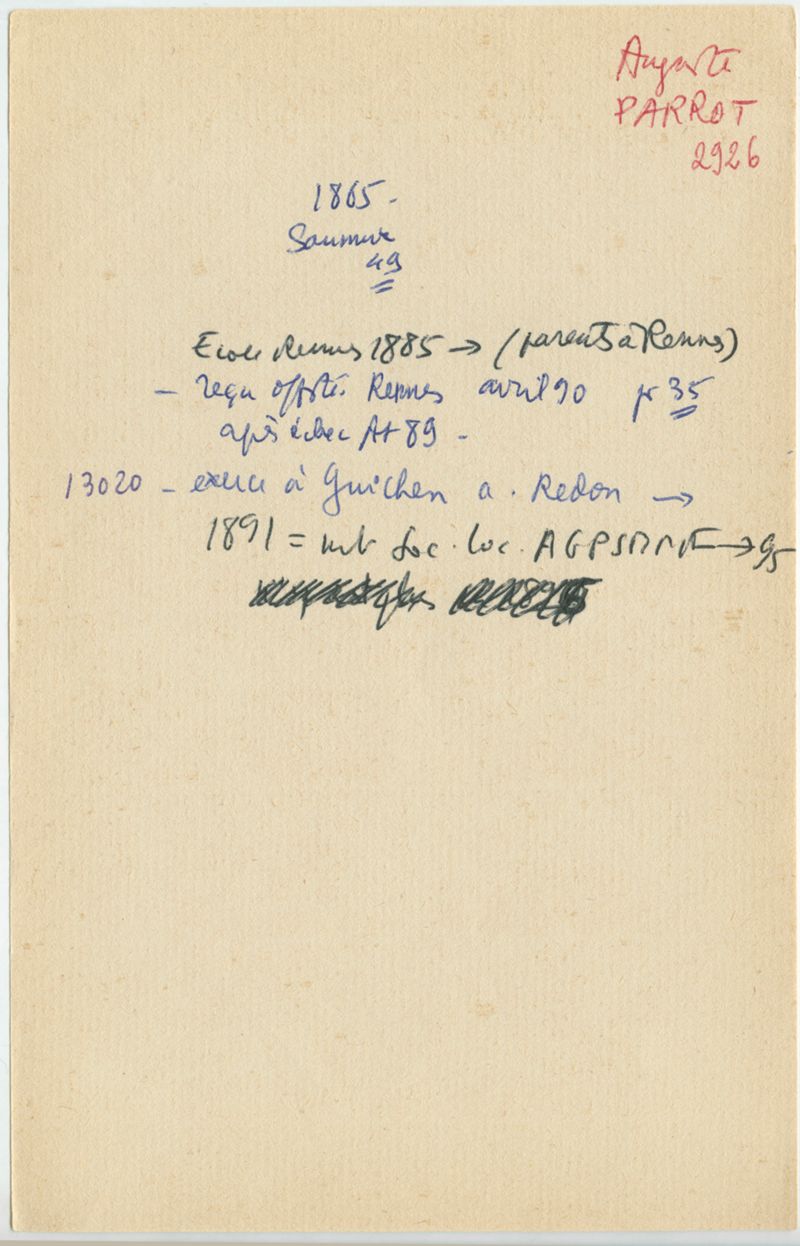 Auguste
PARROT
2926
1865.
Saumur
49
Ecole Rennes 1885 → (parents à Rennes)
- reçu Rennes avril 90 pr 35
après échec At 89 -
13020 - exerce à Guichen a. Redon →
1891 = mb Soc. loc. → 95